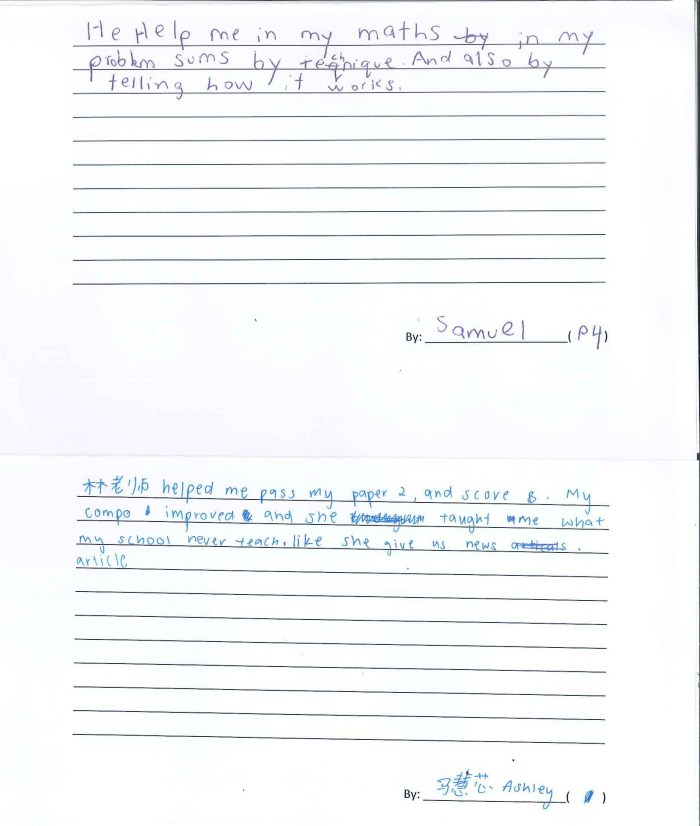 He Help me in my maths by in my
problem sums by technique. And also by
telling how it works.
By: Samuel (P4)
林老师 helped me pass my paper 2, and score B. My
compo improved and she taught me what
my school never teach. like she give us news articals.
article
By: 马慧芯 Ashley ( )